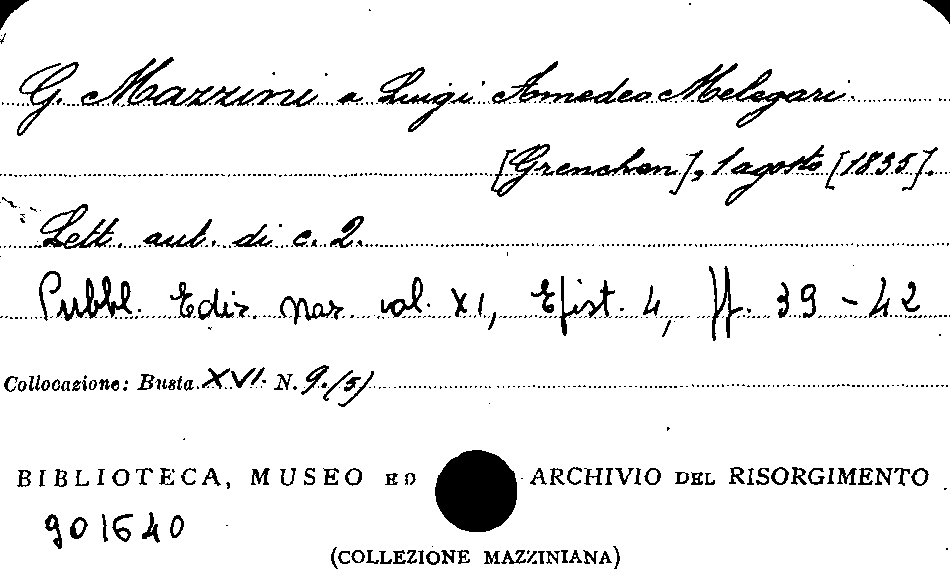 G. Mazzini a Luigi Amedeo Melegari.
[Grenchen], 1 agosto [1835].
Lett. aut. di c. 2.
Pubbl. Ediz. Naz. vol. XI, Epist. 4, pp. 39 - 42
Collocazione: Busta XVI. N. 9.(5)
BIBLIOTECA, MUSEO ED ARCHIVIO DEL RISORGIMENTO
901640
(COLLEZIONE MAZZINIANA)